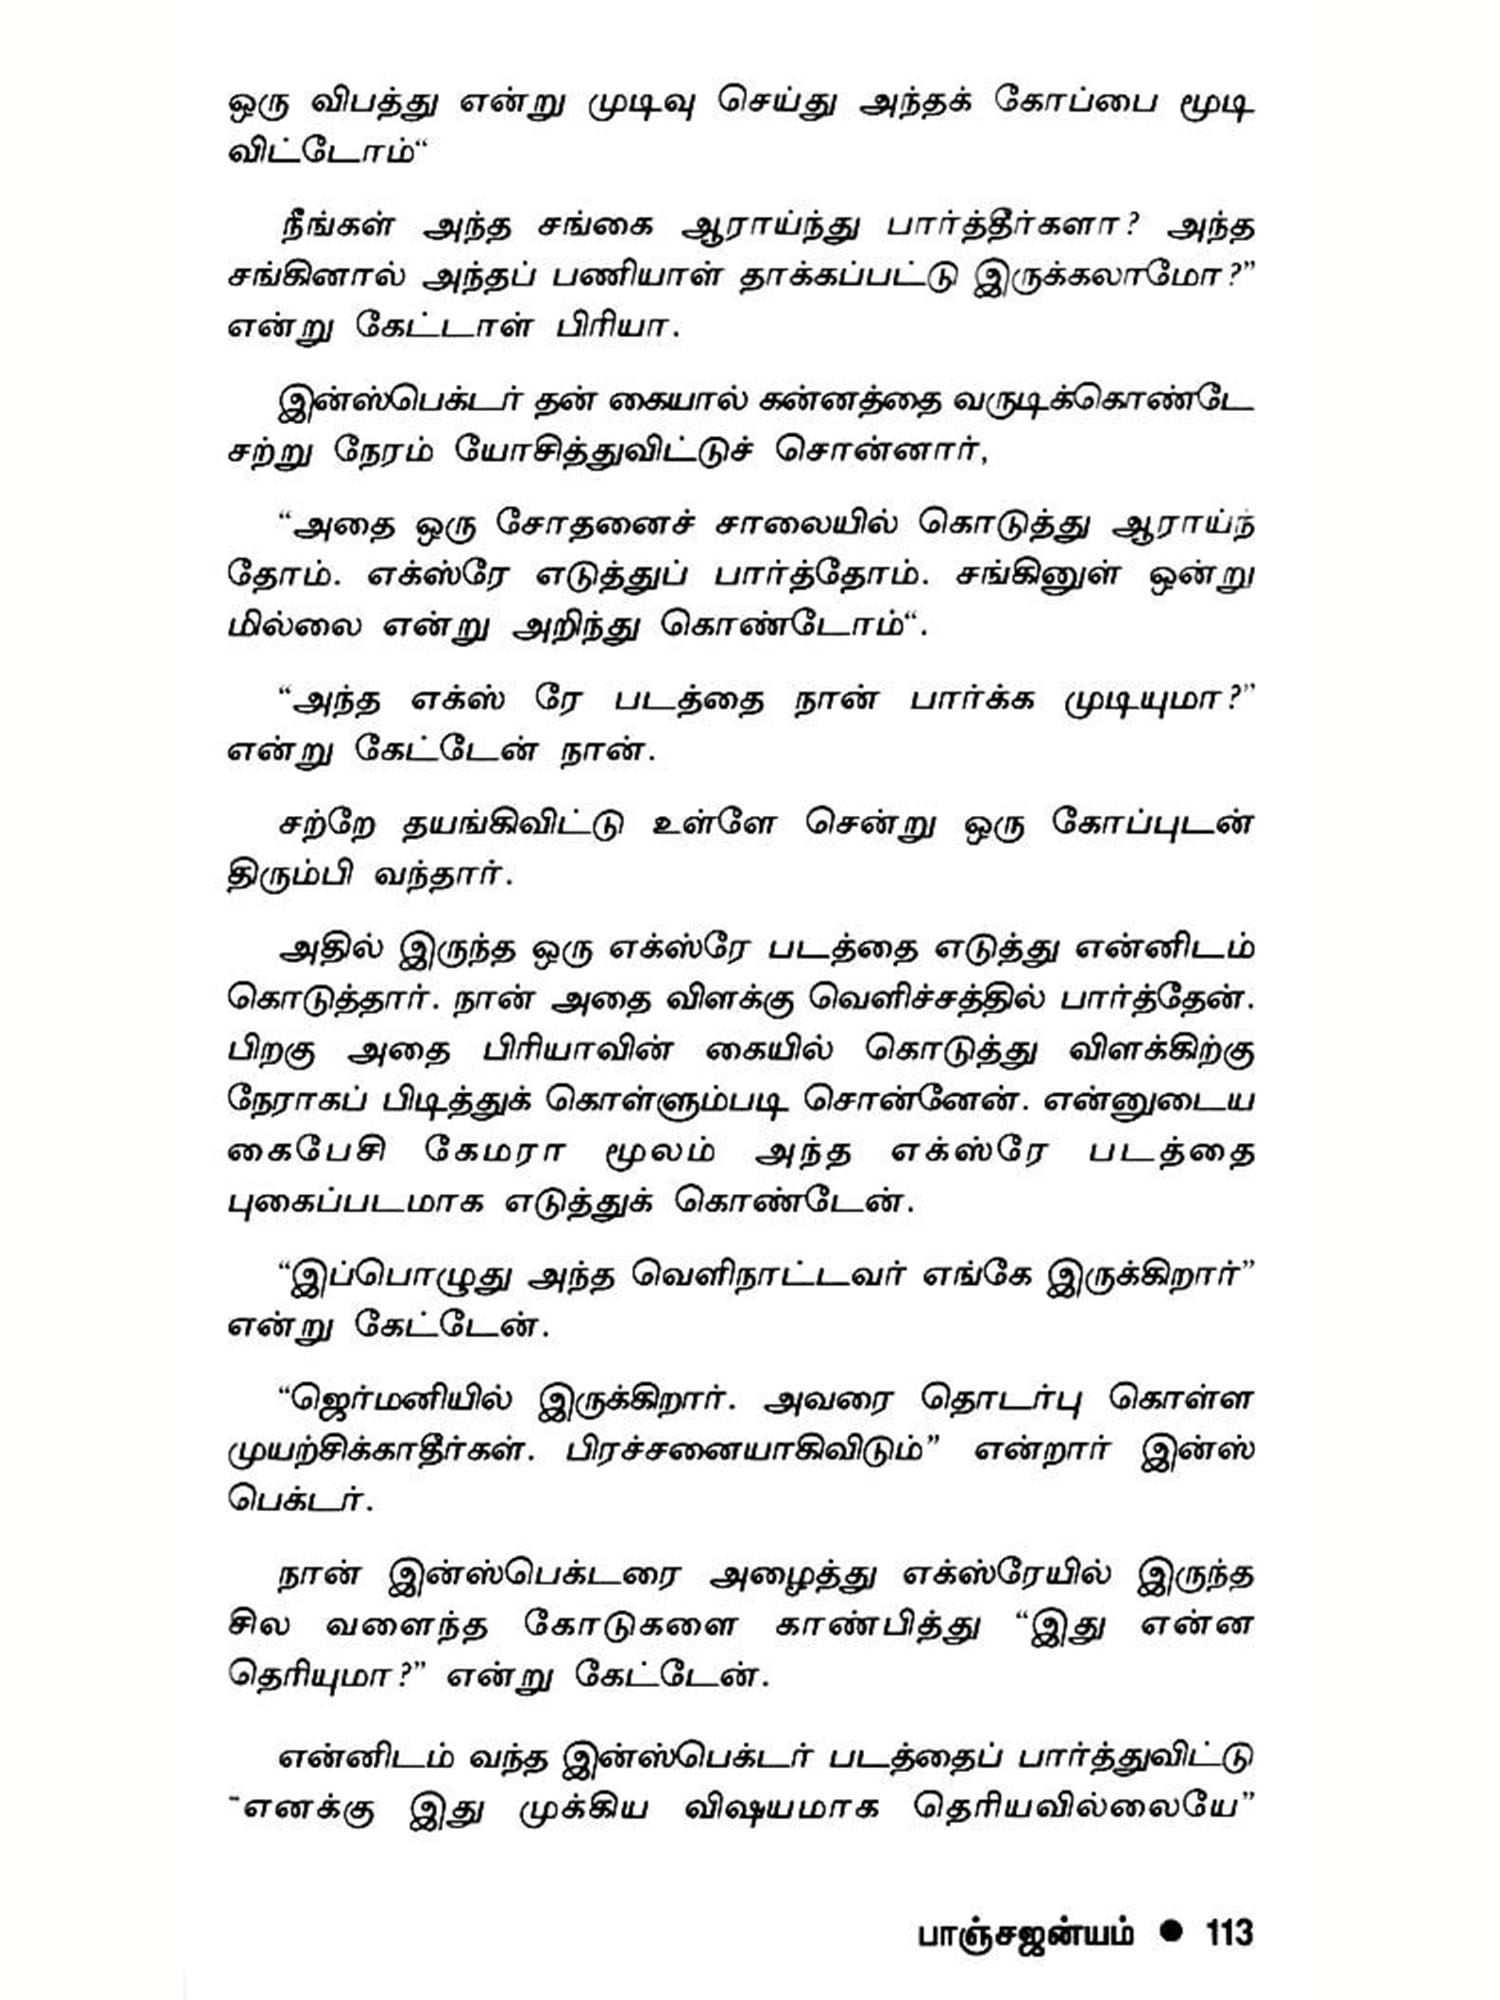 ஒரு விபத்து என்று முடிவு செய்து அந்தக் கோப்பை மூடி
விட்டோம்“
நீங்கள் அந்த சங்கை ஆராய்ந்து பார்த்தீர்களா? அந்த
சங்கினால் அந்தப் பணியாள் தாக்கப்பட்டு இருக்கலாமோ?”
என்று கேட்டாள் பிரியா.
இன்ஸ்பெக்டர் தன் கையால் கன்னத்தை வருடிக்கொண்டே
சற்று நேரம் யோசித்துவிட்டுச் சொன்னார்,
“அதை ஒரு சோதனைச் சாலையில் கொடுத்து ஆராய்ந்
தோம். எக்ஸ்ரே எடுத்துப் பார்த்தோம். சங்கினுள் ஒன்று
மில்லை என்று அறிந்து கொண்டோம்“.
“அந்த எக்ஸ் ரே படத்தை நான் பார்க்க முடியுமா?”
என்று கேட்டேன் நான்.
சற்றே தயங்கிவிட்டு உள்ளே சென்று ஒரு கோப்புடன்
திரும்பி வந்தார்.
அதில் இருந்த ஒரு எக்ஸ்ரே படத்தை எடுத்து என்னிடம்
கொடுத்தார். நான் அதை விளக்கு வெளிச்சத்தில் பார்த்தேன்.
பிறகு அதை பிரியாவின் கையில் கொடுத்து விளக்கிற்கு
நேராகப் பிடித்துக் கொள்ளும்படி சொன்னேன். என்னுடைய
கைபேசி கேமரா மூலம் அந்த எக்ஸ்ரே படத்தை
புகைப்படமாக எடுத்துக் கொண்டேன்.
“இப்பொழுது அந்த வெளிநாட்டவர் எங்கே இருக்கிறார்”
என்று கேட்டேன்.
“ஜெர்மனியில் இருக்கிறார். அவரை தொடர்பு கொள்ள
முயற்சிக்காதீர்கள். பிரச்சனையாகிவிடும்” என்றார் இன்ஸ்
பெக்டர்.
நான் இன்ஸ்பெக்டரை அழைத்து எக்ஸ்ரேயில் இருந்த
சில வளைந்த கோடுகளை காண்பித்து “இது என்ன
தெரியுமா?” என்று கேட்டேன்.
என்னிடம் வந்த இன்ஸ்பெக்டர் படத்தைப் பார்த்துவிட்டு
“எனக்கு இது முக்கிய விஷயமாக தெரியவில்லையே”
பாஞ்சஜன்யம் ● 113